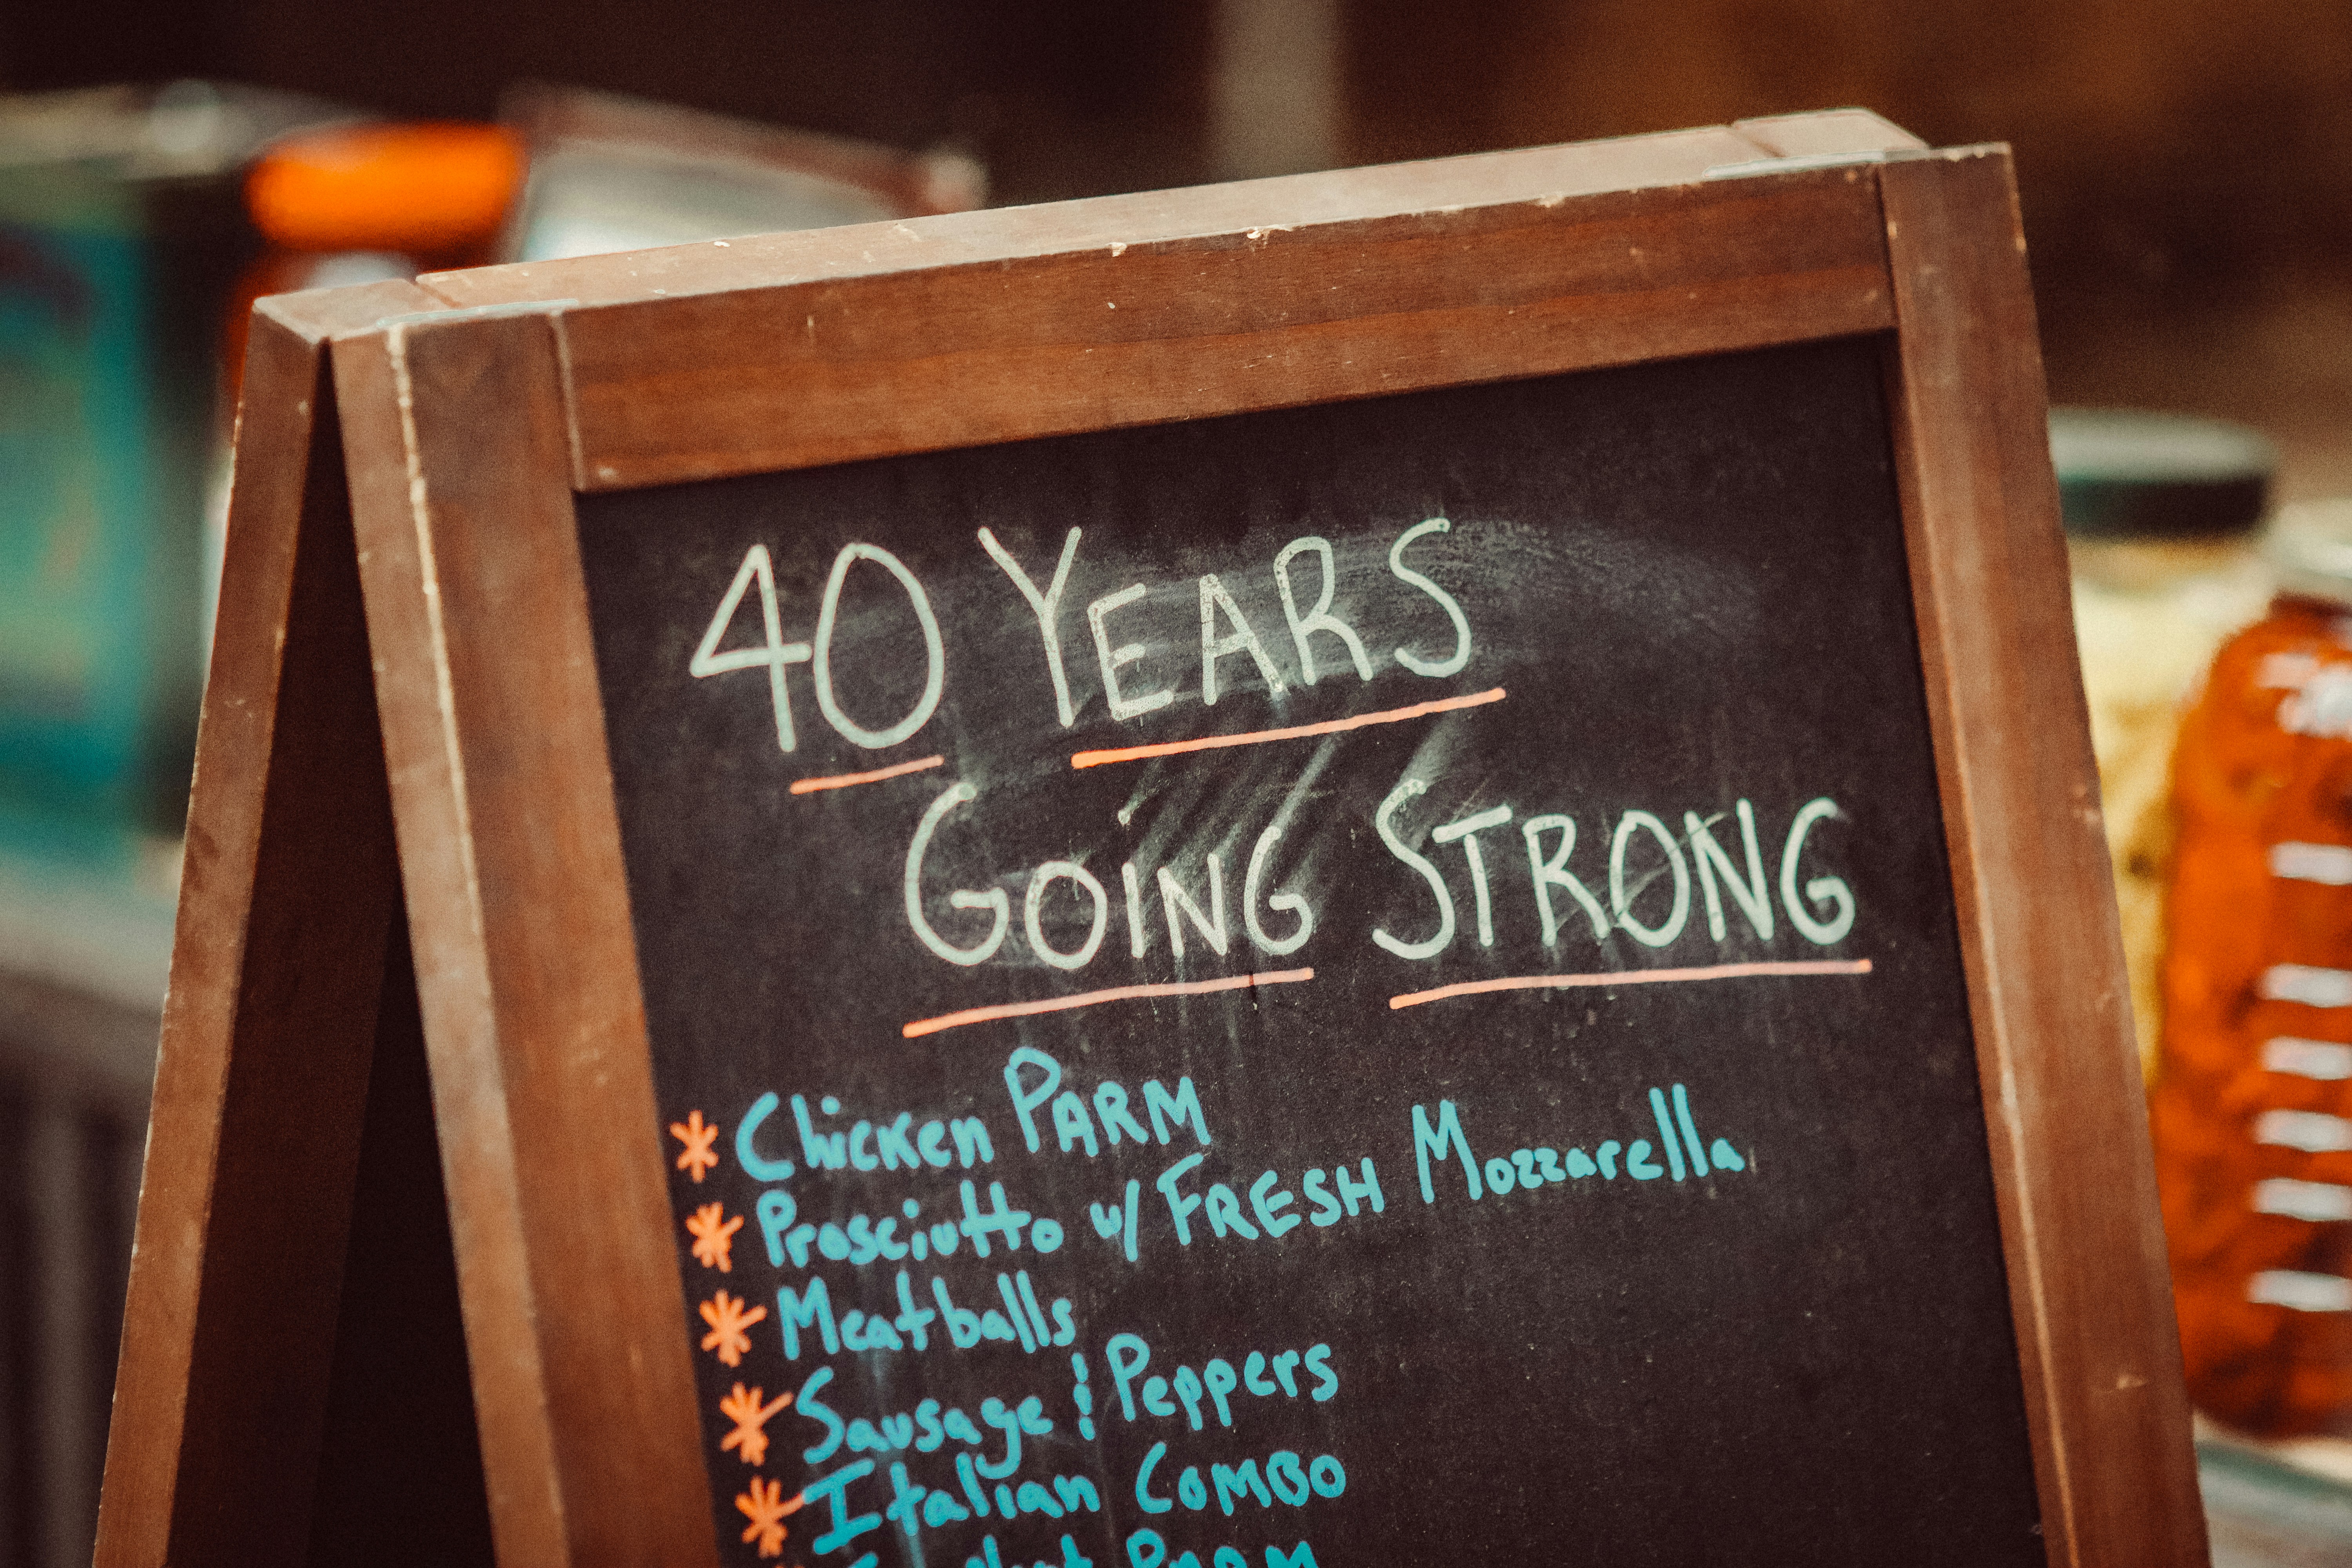 40 YEARS
GOING STRONG
* Chicken PARM
* Prosciutto w/ FRESH Mozzarella
* Meatballs
* Sausage & Peppers
* Italian COMBO
PARM